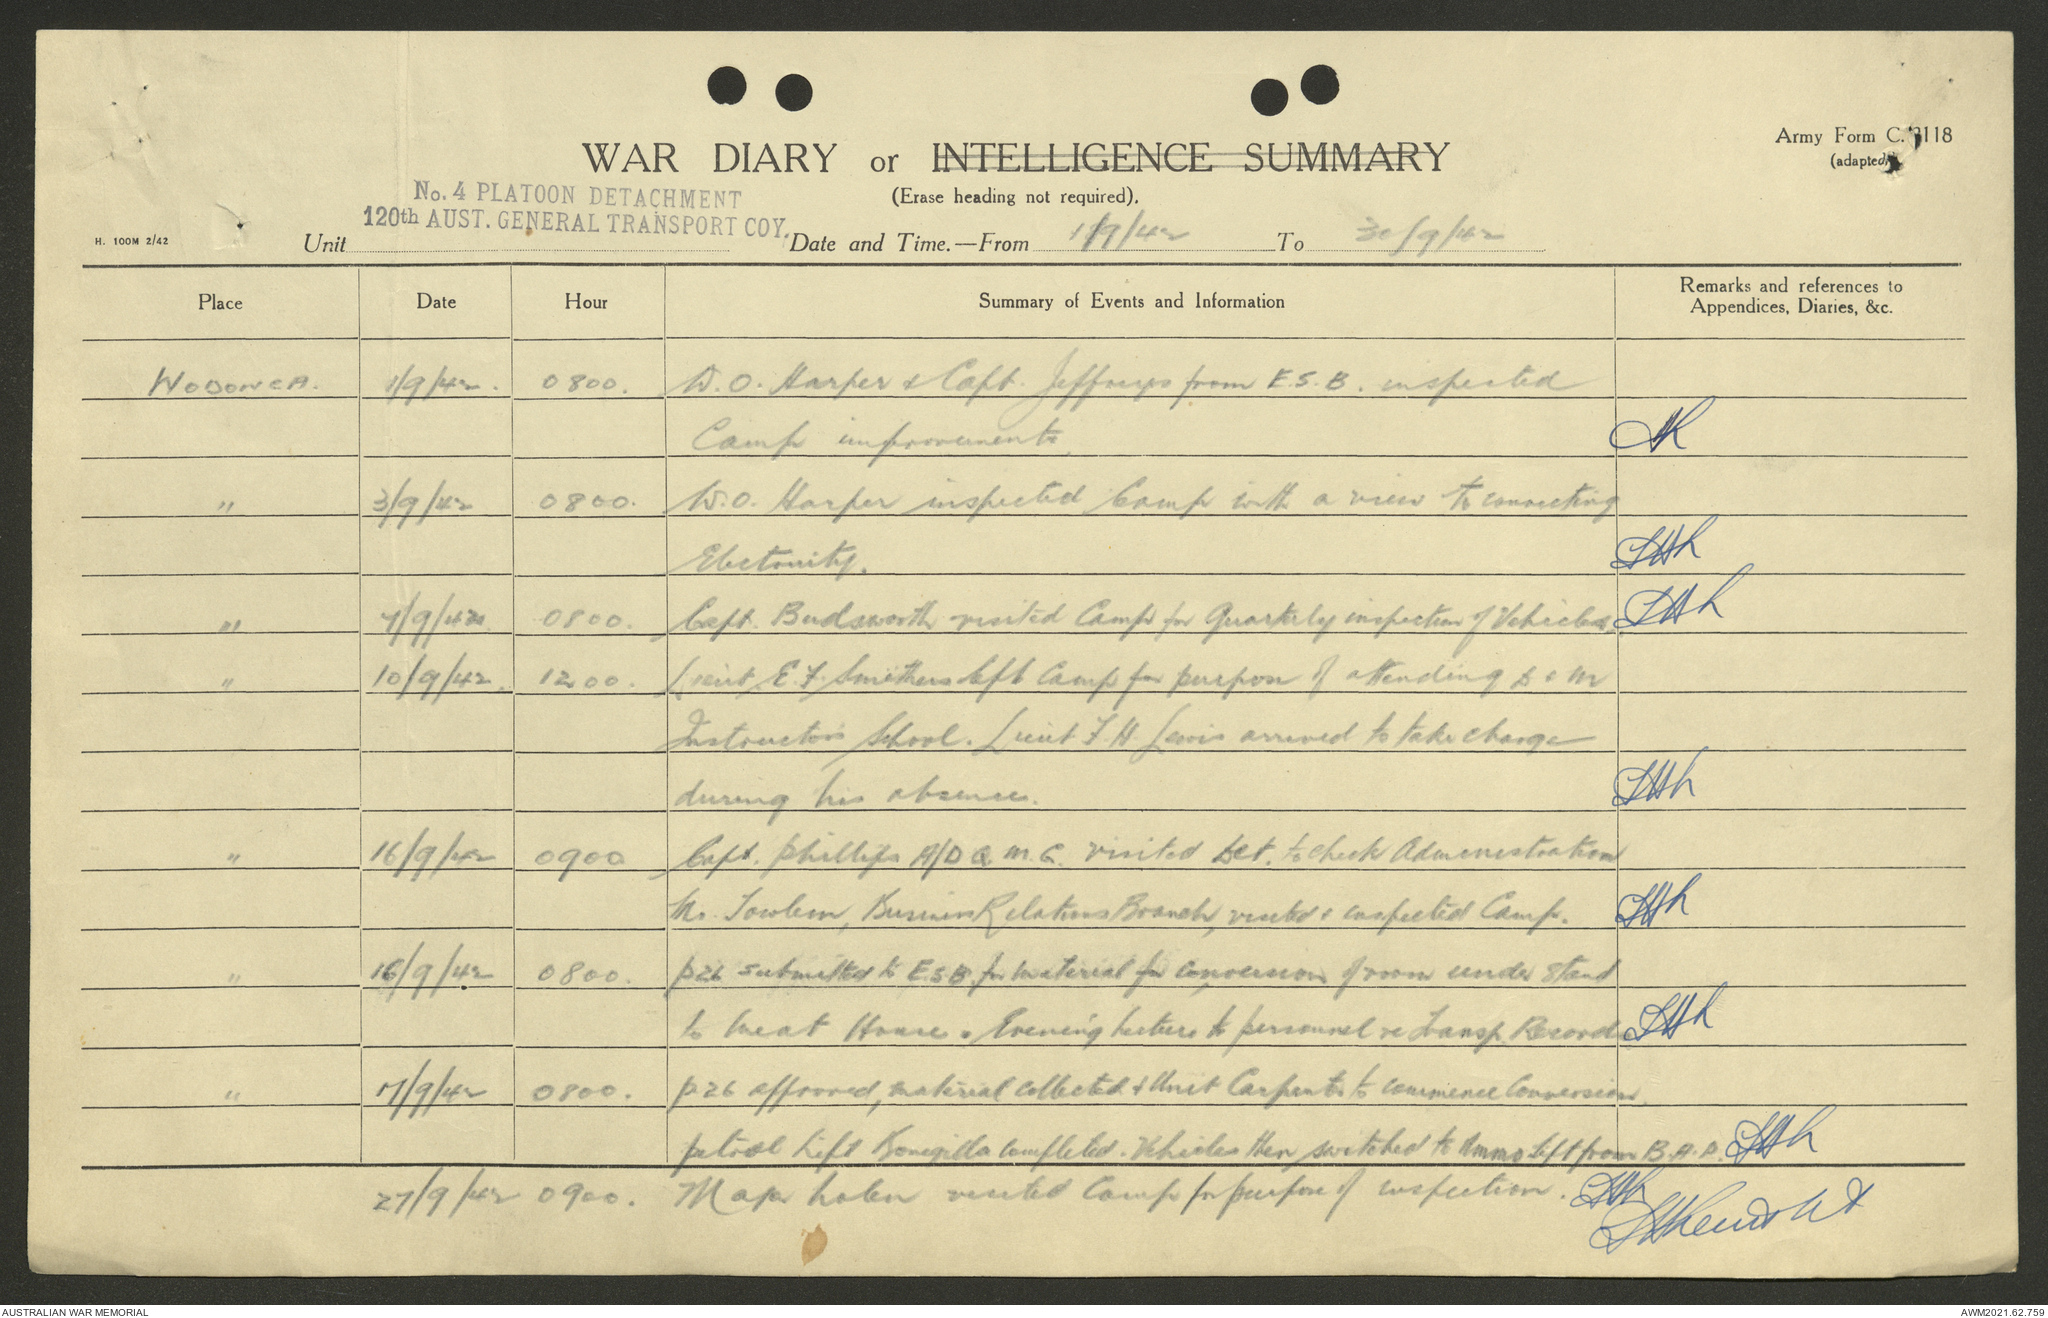 Army Form C.2118
(adapted)
WAR DIARY or INTELLIGENCE SUMMARY
(Erase heading not required).
No. 4 PLATOON DETACHMENT
120th AUST. GENERAL TRANSPORT COY.
H. 100M 2/42
Unit Date and Time.—From 1/9/42 To 30/9/42
Place Date Hour Summary of Events and Information Remarks and references to
Appendices, Diaries, &c.
WODONGA. 1/9/42. 0800. W.O. Harper & Capt. Jeffreys from E.S.B. inspected
Camp improvements.
" 3/9/42 0800. W.O. Harper inspected Camp with a view to connecting
Electonity.
" 7/9/42 0800. Capt. Budsworth visited Camp for Quarterly inspection of Vehicles.
" 10/9/42. 1200. Lieut E.F. Smithers left Camp for purpose of attending D & M
Instructors School. Lieut F.H. Lewis arrived to take charge
during his absence.
" 16/9/42 0900 Capt. Phillips A/D Q.M.G. visited Det. to check Administration
Mr. Business Relations Branch, visited & inspected Camp.
" 16/9/42 0800. P26 submitted to E.S.B. for material for conversion of room under stand
to Meat House. Evening lecture to personnel re Transp. Records
" 17/9/42 0800. P26 approved, material collected & Unit Carpenter to commence Conversion.
petrol lift Bonegilla completed. Vehicles then switched to Ammo lift from B.A.D.
27/9/42 0900. Major visited Camp for purpose of inspection.
FHLewis Lt
AUSTRALIAN WAR MEMORIAL
AWM2021.62.759